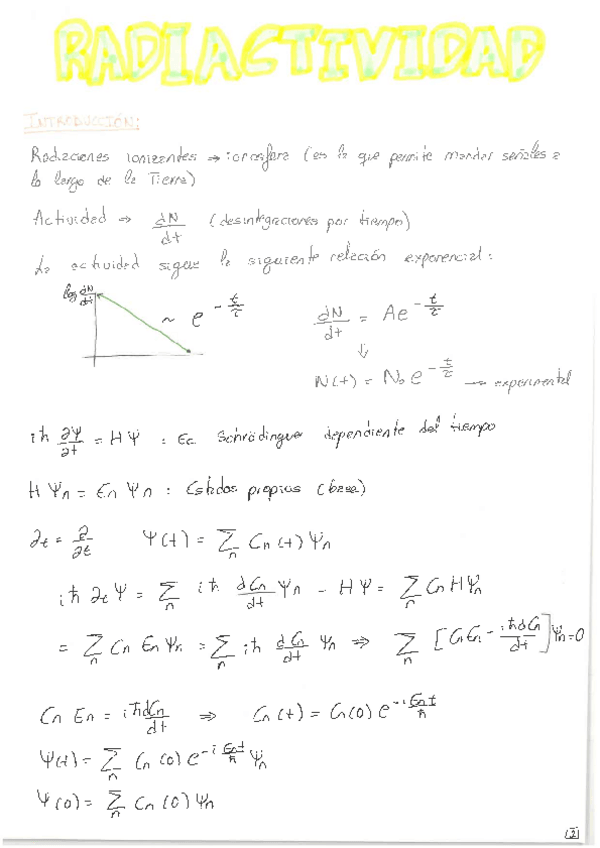 RADIACTIVIDAD
INTRODUCCIÓN:
Radiaciones ionizantes → ionosfera (es la que permite mandar señales a
lo largo de la Tierra)
Actividad → dN/dt (desintegraciones por tiempo)
La actividad sigue la siguiente relación exponencial:
log dN/dt ~ e^(-t/τ) dN/dt = Ae^(-t/τ)
↓
N(t) = N₀ e^(-t/τ) → experimental
iħ ∂Ψ/∂t = HΨ : Ec Schrödinguer dependiente del tiempo
HΨn = En Ψn : Estados propios (base)
∂t = ∂/∂t Ψ(t) = Σn Cn(t) Ψn
iħ ∂tΨ = Σn iħ dCn/dt Ψn - HΨ = Σn Cn HΨn
= Σn Cn En Ψn = Σn iħ dCn/dt Ψn ⇒ Σn [CnEn - iħdCn/dt] Ψn = 0
Cn En = iħdCn/dt ⇒ Cn(t) = Cn(0) e^(-i Ent/ħ)
Ψ(t) = Σn Cn(0) e^(-i Ent/ħ) Ψn
Ψ(0) = Σn Cn(0) Ψn